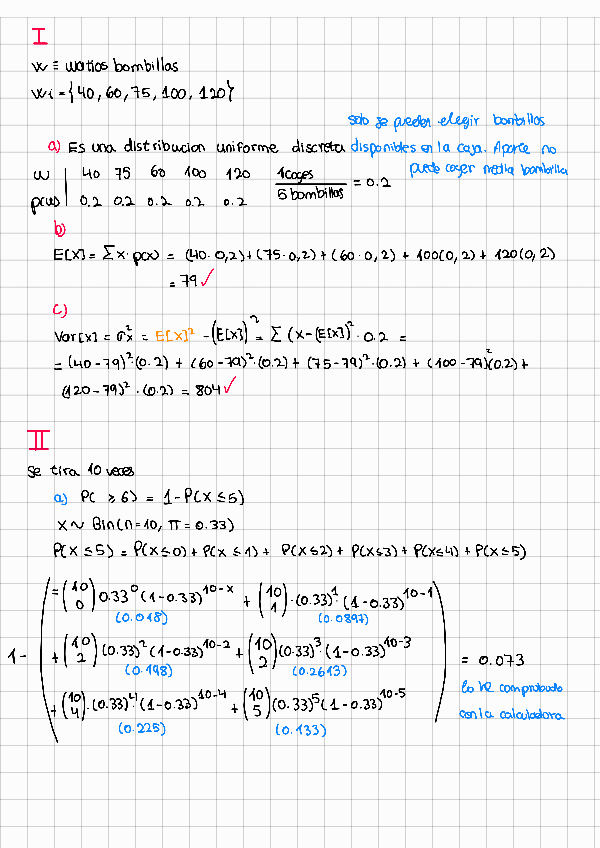 I
W ≡ watios bombillas
Wi = {40, 60, 75, 100, 120}
solo se pueden elegir bombillas
a) Es una distribucion uniforme discreta disponibles en la caja. Aparte no
puede coger media bombilla
w | 40 75 60 100 120 1 coges / 5 bombillas = 0.2
p(w) | 0.2 0.2 0.2 0.2 0.2
b)
E[X] = Σ x · p(x) = (40 · 0,2) + (75 · 0,2) + (60 · 0,2) + 100(0,2) + 120(0,2)
= 79 ✓
c)
Var[x] = σ²x = E[X]² - (E[X])² = Σ (x - (E[X])² · 0.2 =
= (40-79)² · (0.2) + (60-79)² · (0.2) + (75-79)² · (0.2) + (100-79)² (0.2) +
(120-79)² · (0.2) = 804 ✓
II
Se tira 10 veces
a) P( ≥ 6) = 1 - P(X ≤ 5)
X ~ Bin(n=10, π = 0.33)
P(X ≤ 5) = P(X ≤ 0) + P(X ≤ 1) + P(X ≤ 2) + P(X ≤ 3) + P(X ≤ 4) + P(X ≤ 5)
= (10 0) 0.33⁰ (1-0.33)^10-x + (10 1) · (0.33)¹ (1-0.33)^10-1
(0.018) (0.0897)
1 - + (10 2) (0.33)² (1-0.33)^10-2 + (10 2) (0.33)³ (1-0.33)^10-3 = 0.073
(0.198) (0.2613) lo he comprobado
+ (10 4) · (0.33)⁴ (1-0.33)^10-4 + (10 5) (0.33)⁵ (1-0.33)^10-5 con la calculadora
(0.225) (0.133)